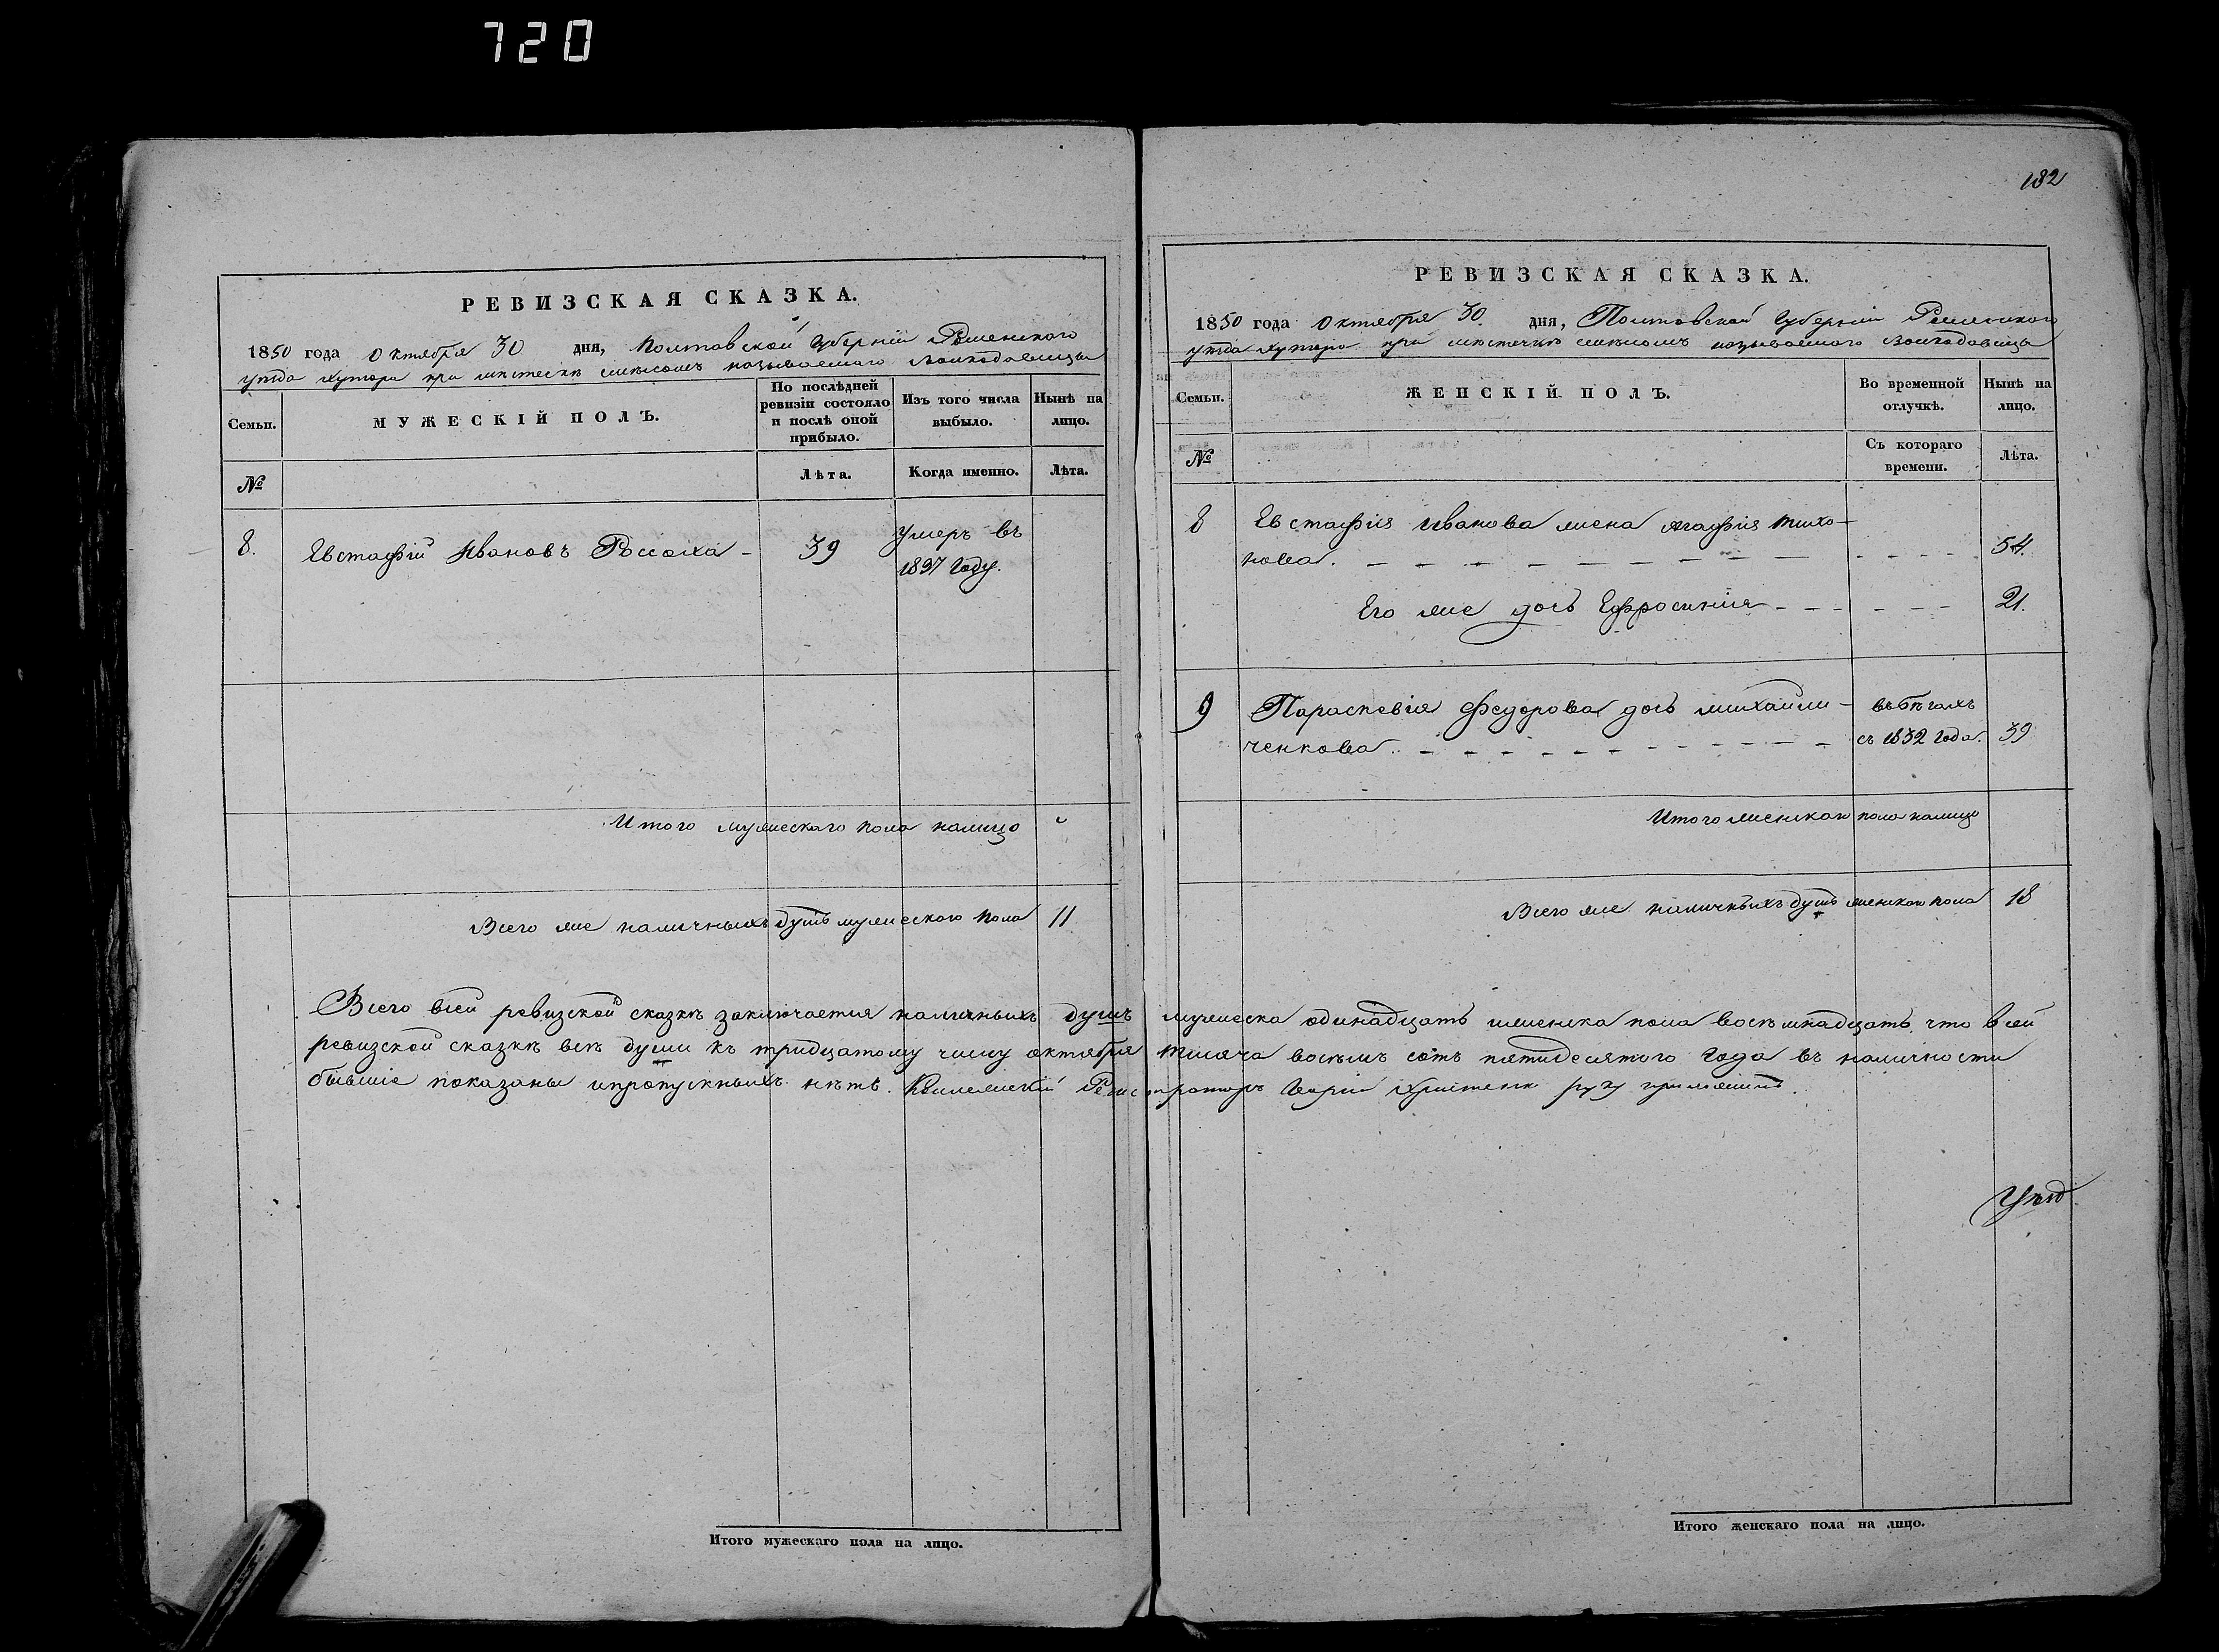 720
РЕВИЗСКАЯ СКАЗКА.
1850 года Октября 30 дня, Полтавской Губерніи Роменского
уѣзда хутора при мѣстечкѣ называемого
Семьи.
МУЖЕСКІЙ ПОЛЪ.
По послѣдней ревизіи состояло и послѣ оной прибыло.
Изъ того числа выбыло.
Нынѣ на лицо.
№
Лѣта.
Когда именно.
Лѣта.
8. Евстафій Ивановъ Россоха - 39 умеръ въ
1837 году.
Итого мужескаго пола налицо
Всего же наличныхъ душъ мужеского пола 11
182
РЕВИЗСКАЯ СКАЗКА.
1850 года Октября 30. дня, Полтавской Губерніи Роменского
уѣзда хутора при мѣстечкѣ называемого
Семьи.
ЖЕНСКІЙ ПОЛЪ.
Во временной отлучкѣ.
Нынѣ на лицо.
№
Съ котораго времени.
Лѣта.
8 Евстафія Иванова жена Агафія Тихо-
нова. 54.
Его же дочь Ефросинія 21.
9 Параскевія Федорова дочь Михайли- въ бѣгахъ
ченкова. съ 1832 года. 39
Итого женскаго пола налицо
Всего же наличныхъ душъ женскаго пола 18
Всего всей ревизской сказкѣ заключается наличныхъ душъ мужеска одинадцать женска пола восемнадцать, что в сей
ревизской сказкѣ всѣ души къ тридцатому числу октября тысяча восемь сотъ пятидесятого года въ наличности
бывшіе показаны и пропускныхъ нѣтъ. Регистраторъ руку приложилъ.
Уѣзд
Итого мужескаго пола на лицо.
Итого женскаго пола на лицо.